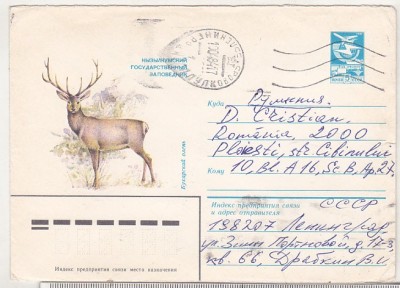 КЫЗЫЛКУМСКИЙ
ГОСУДАРСТВЕННЫЙ
ЗАПОВЕДНИК
Бухарский олень
Куда Румыния.
D. Cristian.
România, 2000
Ploești, str. Cibinului
Кому 10, Bl. A 16, Sc B, Ap. 27.
Индекс предприятия связи
и адрес отправителя
СССР
198207 Ленинград
ул. Зины Портновой д. 17-3
кв. 56, Драбкин В.И
Индекс предприятия связи места назначения